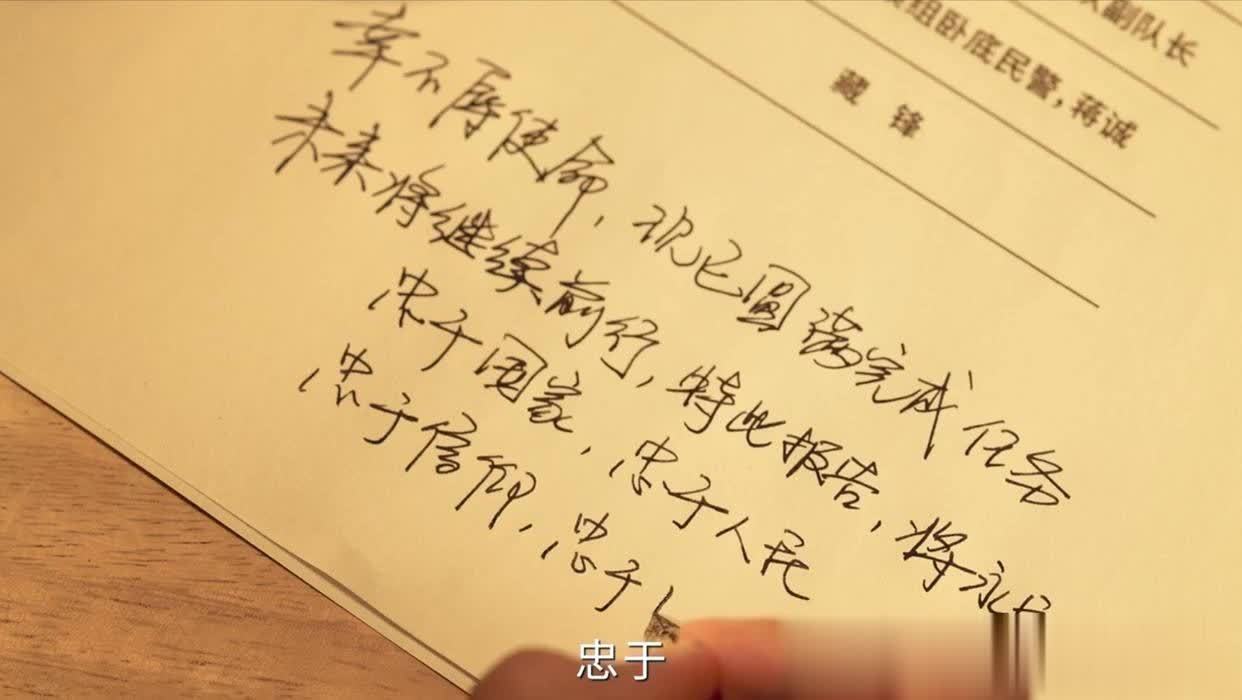 副队长
组卧底民警，蒋诚
藏 锋
幸不辱使命，现已圆满完成任务
未来将继续前行，特此报告，将永
忠于国家，忠于人民
忠于信仰，忠于
忠于